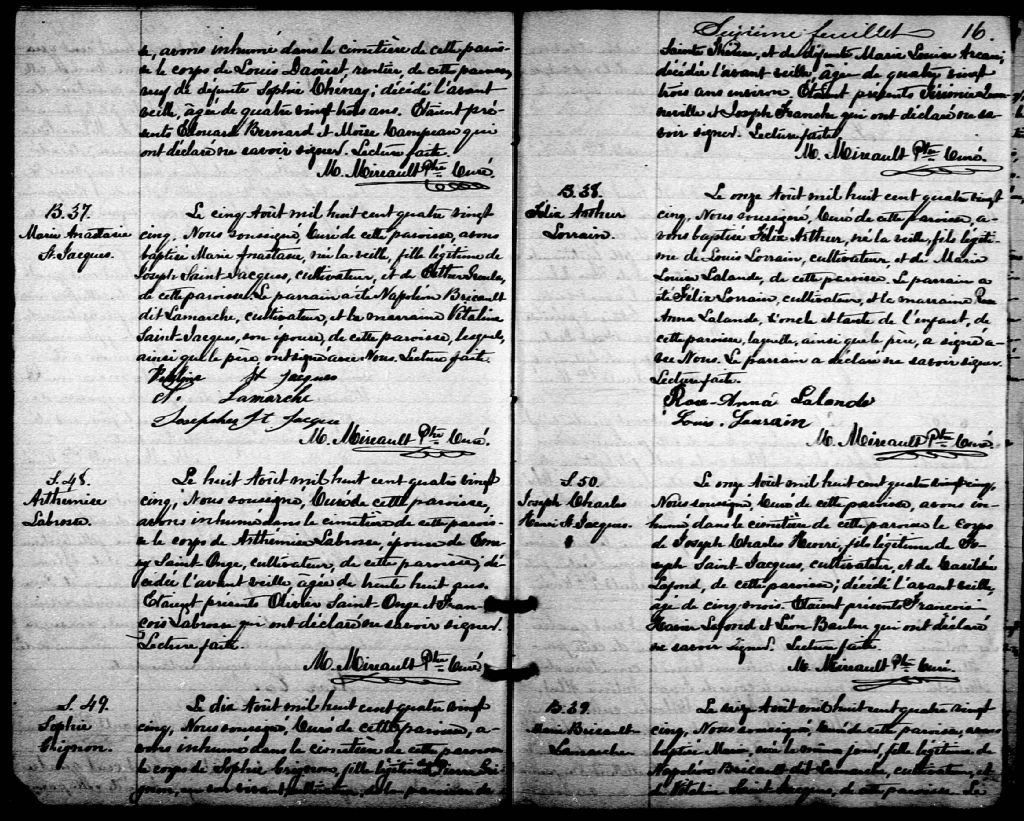 se, avons inhumé dans le cimetière de cette parois-
se le corps de Louis Daôust, rentier, de cette paroisse,
veuf de défunte Sophie Chénay; décédé l'avant
veille, âgé de quatre vingt trois ans. Étaient pré-
sents Édouard Bernard et Moïse Campeau qui
ont déclaré ne savoir signer. Lecture faite.
M. Mireault Ptre Curé.
B. 37.
Marie Anastasie
St. Jacques.
Le cinq Août mil huit cent quatre vingt
cinq, Nous soussigné, Curé de cette paroisse, avons
baptisé Marie Anastasie, née la veille, fille légitime de
Joseph Saint-Jacques, cultivateur, et de
de cette paroisse. Le parrain a été Napoléon Bricault
dit Lamarche, cultivateur, et la marraine Vitaline
Saint-Jacques, son épouse, de cette paroisse, lesquels,
ainsi que le père, ont signé avec Nous. Lecture faite.
Vitaline St Jacques
N. Lamarche
Josephes St Jacque
M. Mireault Ptre Curé.
S. 48.
Arthémise
Labrosse.
Le huit Août mil huit cent quatre vingt
cinq, Nous soussigné, Curé de cette paroisse,
avons inhumé dans le cimetière de cette parois-
se le corps de Arthémise Labrosse, épouse de
Saint-Onge, cultivateur, de cette paroisse, dé-
cédée l'avant veille, âgée de trente huit ans.
Étaient présents Olivier Saint-Onge et Fran-
cois Labrosse qui ont déclaré ne savoir signer.
Lecture faite.
M. Mireault Ptre Curé.
S. 49.
Sophie
Grignon.
Le dix Août mil huit cent quatre vingt
cinq, Nous soussigné, Curé de cette paroisse, a-
vons inhumé dans le cimetière de cette paroisse
le corps de Sophie Grignon, fille légitime de Pierre Gri-
gnon, en son vivant, cultivateur, de la paroisse de
Sixième feuillet 16.
Sainte Thérèse, et de défunte Marie Louise
décédée l'avant veille, âgée de quatre vingt
trois ans environ. Étaient présents Jérémie
et Joseph Franche qui ont déclaré ne sa-
voir signer. Lecture faite.
M. Mireault Ptre Curé.
B. 38.
Félix Arthur
Lorrain.
Le onze Août mil huit cent quatre vingt
cinq, Nous soussigné, Curé de cette paroisse, a-
vons baptisé Félix Arthur, né la veille, fils légiti-
me de Louis Lorrain, cultivateur, et de Marie
Louise Lalande, de cette paroisse. Le parrain a
été Félix Lorrain, cultivateur, et la marraine Rose
Anna Lalande, l'oncle et tante de l'enfant, de
cette paroisse, laquelle, ainsi que le père, a signé a-
vec Nous. Le parrain a déclaré ne savoir signer.
Lecture faite.
Rose-Anna Lalande
Louis Laurain
M. Mireault Ptre Curé.
S. 50.
Joseph Charles
Henri St Jacques.
Le onze Août mil huit cent quatre vingt cinq,
Nous soussigné, Curé de cette paroisse, avons in-
humé dans le cimetière de cette paroisse le corps
de Joseph Charles Henri, fils légitime de Jo-
seph Saint-Jacques, cultivateur, et de Basilice
Lafond, de cette paroisse; décédé l'avant veille,
âgé de cinq mois. Étaient présents François
Xavier Lafond et Léon Baulne qui ont déclaré
ne savoir signer. Lecture faite.
M. Mireault Ptre Curé.
B. 39.
Marie Bricault
Lamarche
Le seize Août mil huit cent quatre vingt
cinq, Nous soussigné, Curé de cette paroisse, avons
baptisé Marie, née le même jour, fille légitime de
Napoléon Bricault dit Lamarche, cultivateur, et
de Vitaline Saint-Jacques, de cette paroisse. Le